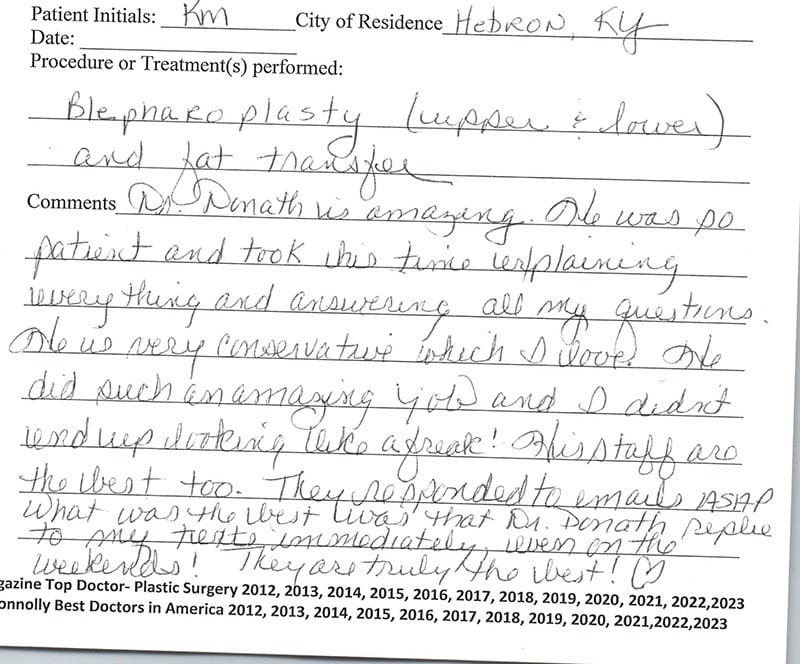 Patient Initials: KM City of Residence Hebron, KY
Date:
Procedure or Treatment(s) performed:
Blepharoplasty (upper & lower)
and fat transfer
Comments Dr. Donath is amazing. He was so
patient and took his time explaining
everything and answering all my questions.
He is very conservative which I love! He
did such an amazing job and I didn't
end up looking like a freak! His staff are
the best too. They responded to emails ASAP
What was the best was that Dr. Donath replie
to my texts immediately, even on the
weekends! They are truly the best! ♡
gazine Top Doctor- Plastic Surgery 2012, 2013, 2014, 2015, 2016, 2017, 2018, 2019, 2020, 2021, 2022,2023
onnolly Best Doctors in America 2012, 2013, 2014, 2015, 2016, 2017, 2018, 2019, 2020, 2021,2022,2023